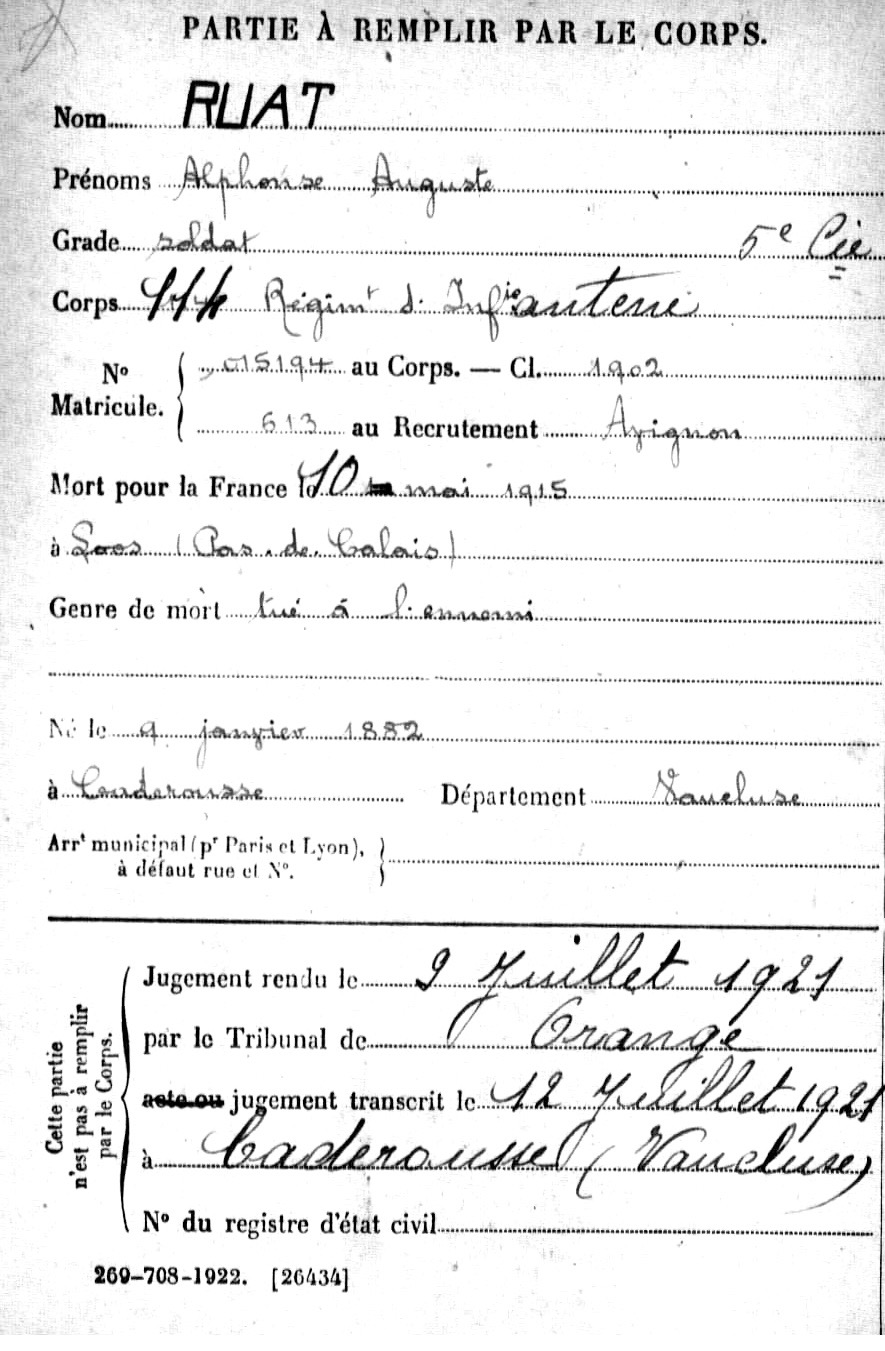 PARTIE À REMPLIR PAR LE CORPS.
Nom RUAT
Prénoms Alphonse Auguste
Grade soldat 5e Cie
Corps Régimt d'Infieanterie
No Matricule. 015194 au Corps. — Cl. 1902
613 au Recrutement Avignon
Mort pour la France le 10 mai 1915
à Loos (Pas-de-Calais)
Genre de mort tué à l'ennemi
Né le 9 janvier 1882
à Caderousse Département Vaucluse
Arrt municipal (pr Paris et Lyon),
à défaut rue et No.
Cette partie n'est pas à remplir par le Corps.
Jugement rendu le 9 Juillet 1921
par le Tribunal de Orange
acte ou jugement transcrit le 12 Juillet 1921
à Caderousse (Vaucluse)
No du registre d'état civil
269-708-1922. [26434]